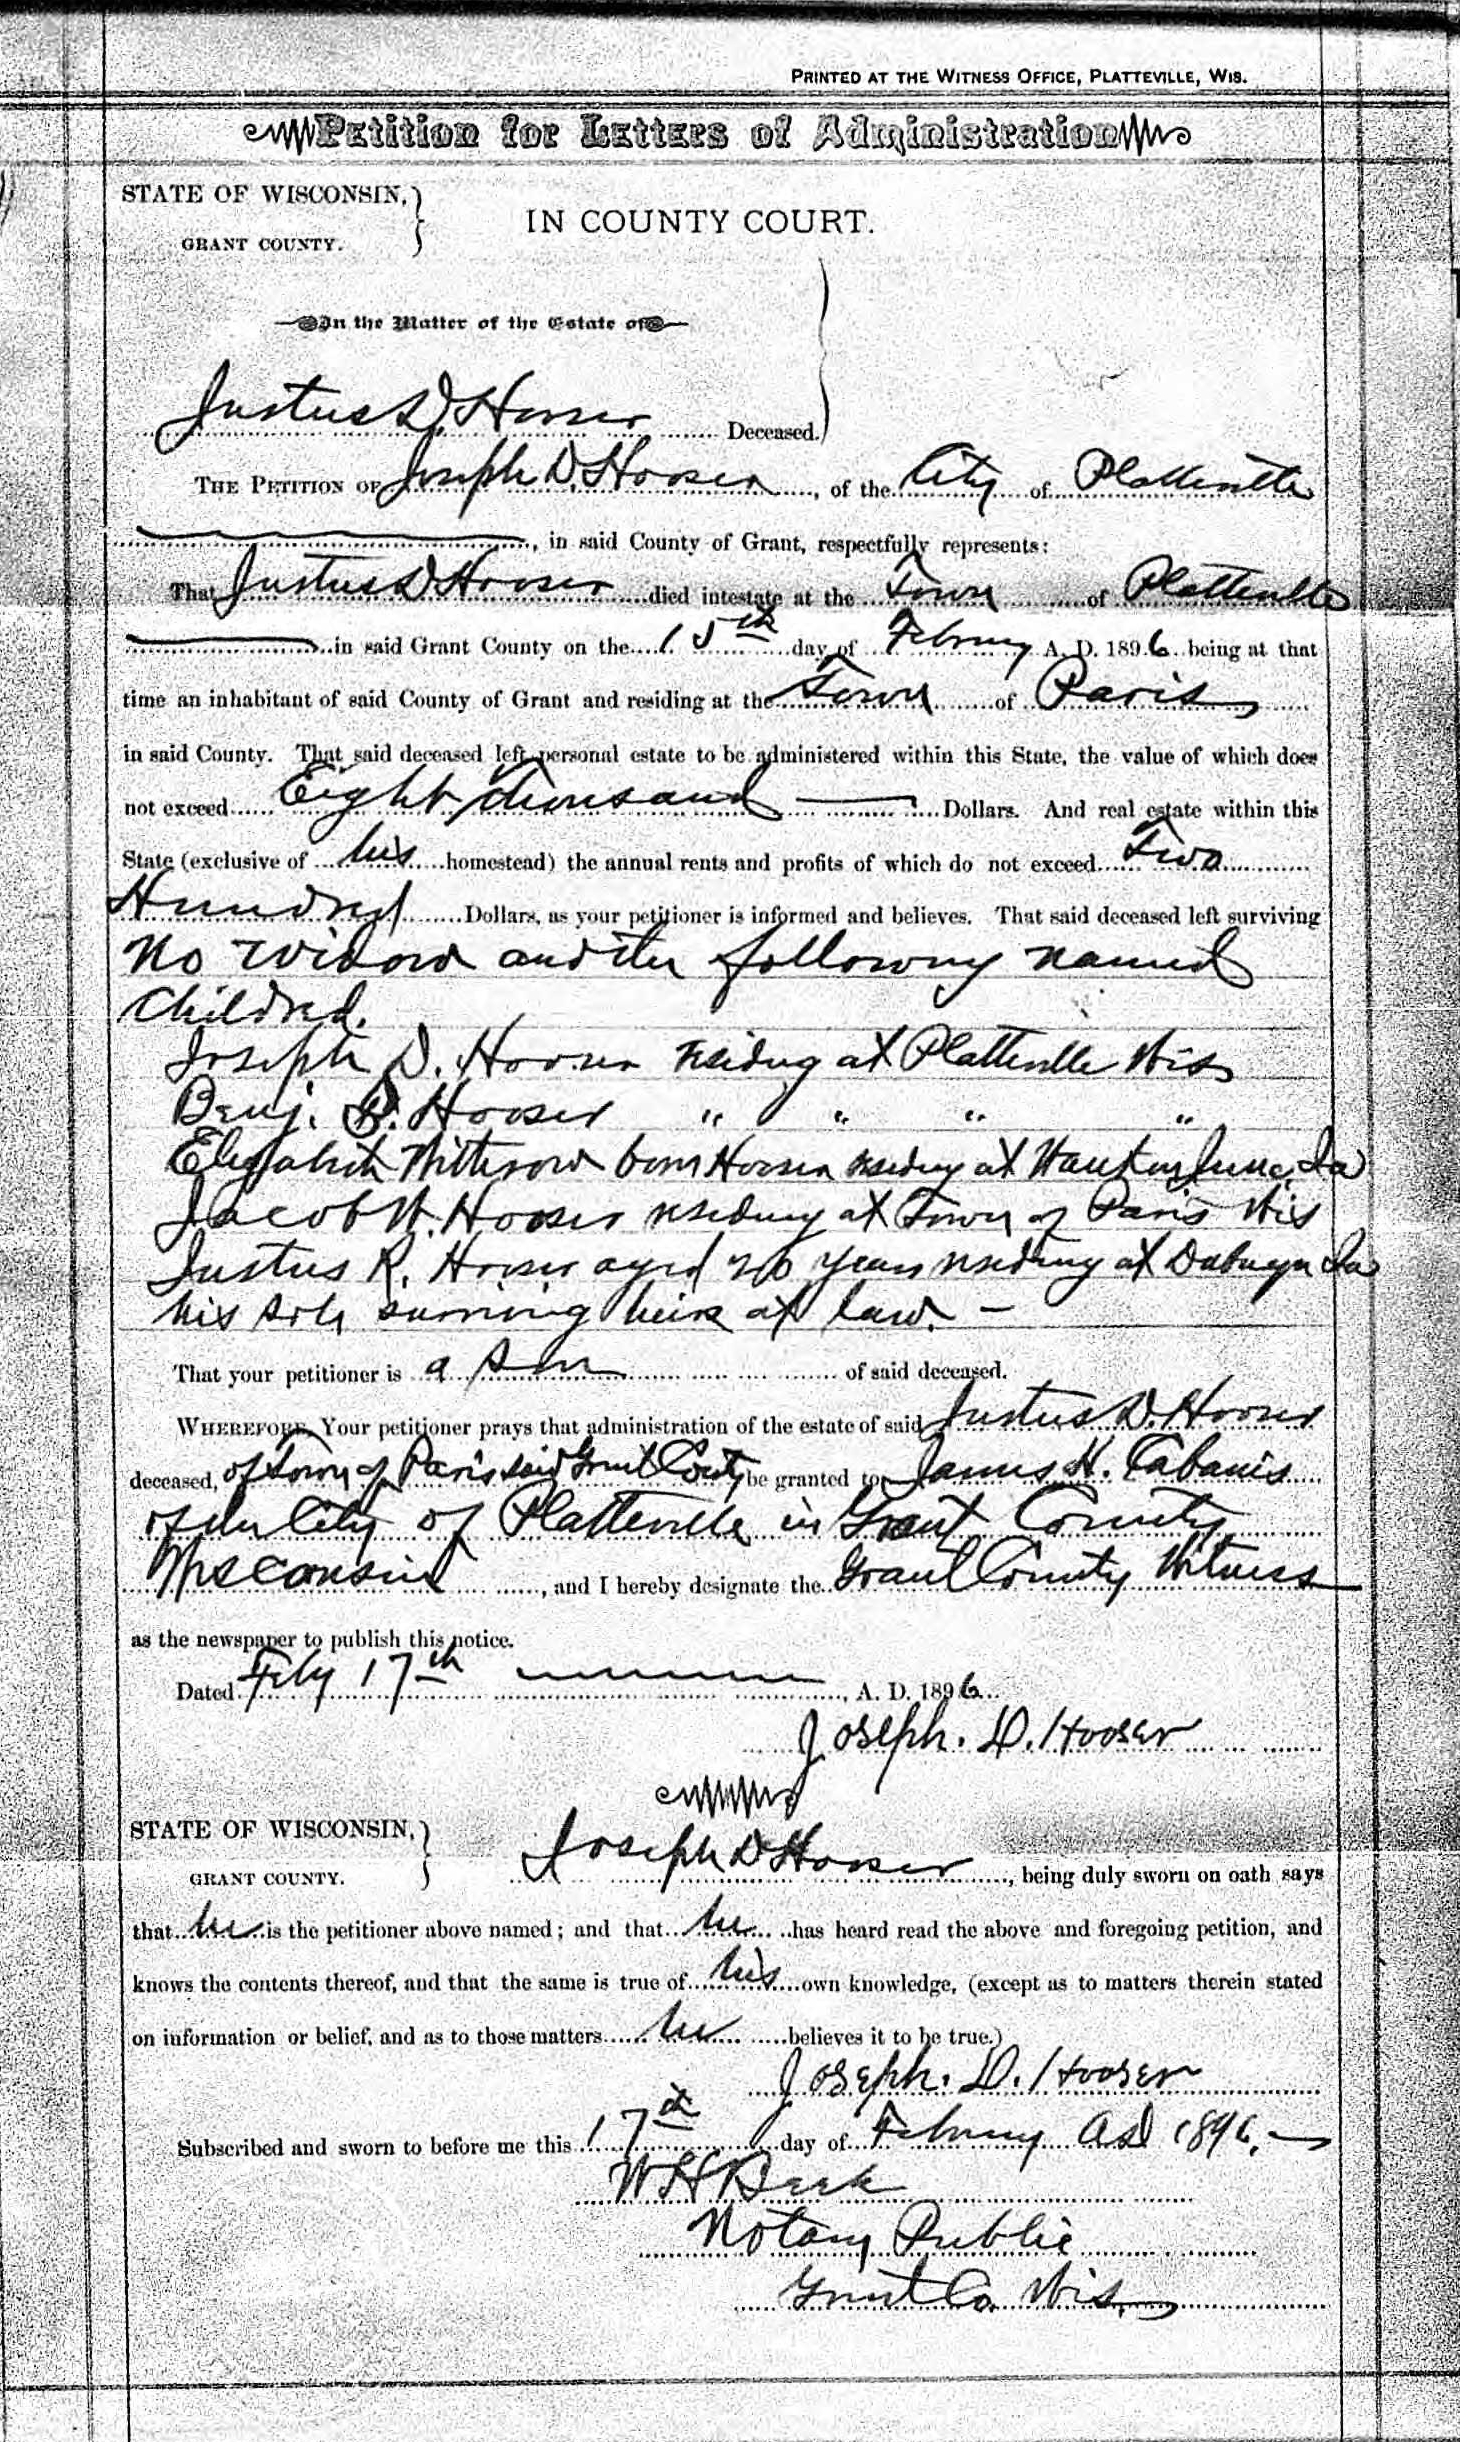 PRINTED AT THE WITNESS OFFICE, PLATTEVILLE, WIS.
Petition for Letters of Administration
STATE OF WISCONSIN,
GRANT COUNTY.
IN COUNTY COURT.
In the Matter of the Estate of
Justus D. Hooser Deceased.
THE PETITION OF Joseph D. Hooser, of the City of Platteville
, in said County of Grant, respectfully represents:
That Justus D Hooser died intestate at the Town of Platteville
in said Grant County on the 15th day of February A. D. 1896 being at that
time an inhabitant of said County of Grant and residing at the Town of Paris
in said County. That said deceased left personal estate to be administered within this State, the value of which does
not exceed Eight Thousand Dollars. And real estate within this
State (exclusive of his homestead) the annual rents and profits of which do not exceed Two
Hundred Dollars, as your petitioner is informed and believes. That said deceased left surviving
No widow and the following named
children.
Joseph D. Hooser residing at Platteville Wis
Benj. B. Hooser " " " "
Elizabeth Witterow born Hooser residing at Ia
Jacob W. Hooser residing at Town of Paris Wis
Justus R. Hooser aged years residing at Dubuque Ia
his sole surviving heirs at law. —
That your petitioner is a son of said deceased.
WHEREFORE, Your petitioner prays that administration of the estate of said Justus D. Hooser
deceased, of Town of Paris said Grant County be granted to James H. Cabanis
of the City of Platteville in Grant County
Wisconsin, and I hereby designate the Grant County Witness
as the newspaper to publish this notice.
Dated Feby 17th, A. D. 1896
Joseph. D. Hooser
STATE OF WISCONSIN,
GRANT COUNTY.
Joseph D Hooser, being duly sworn on oath says
that he is the petitioner above named; and that he has heard read the above and foregoing petition, and
knows the contents thereof, and that the same is true of his own knowledge, (except as to matters therein stated
on information or belief, and as to those matters he believes it to be true.)
Joseph. D. Hooser
Subscribed and sworn to before me this 17th day of February AD 1896.
W H Beek
Notary Public
Grant Co. Wis.